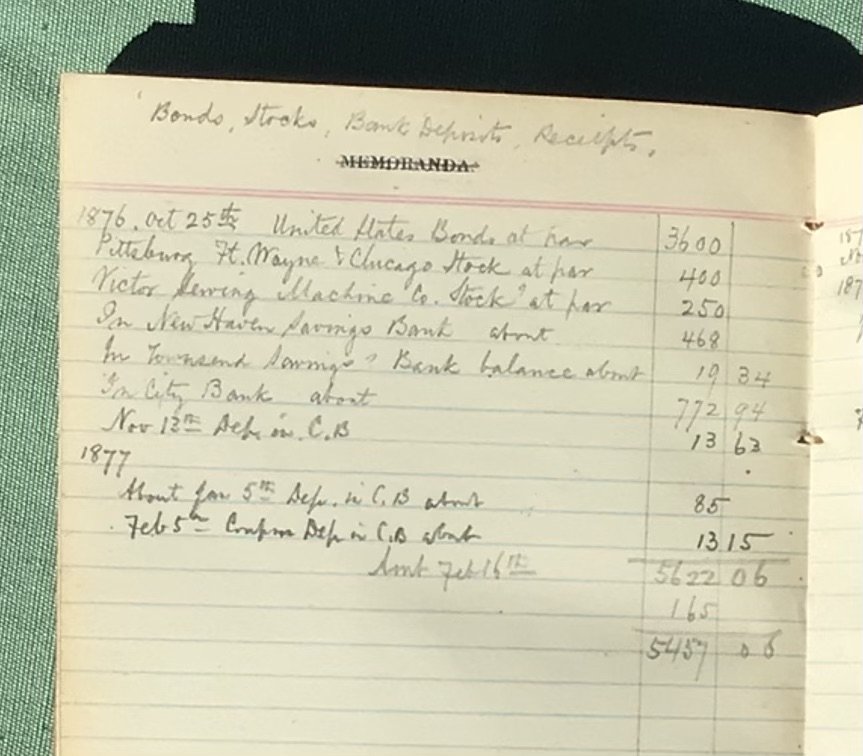 Bonds, Stocks, Bank Deposits, Receipts.
MEMORANDA.
1876. Oct 25th United States Bonds at par 3600
Pittsburg, Ft. Wayne & Chicago Stock at par 400
Victor Sewing Machine Co. Stock at par 250
In New Haven Savings Bank about 468
In Townsend Savings Bank balance about 19 34
In City Bank about 772 94
Nov 13th Dep. in C.B 13 63
1877
About Jan 5th Dep. in C.B about 85
Feb 5th Coupon Dep in C.B about 13 15
Amt Feb 16th 5622 06
165
5457 06
187
187